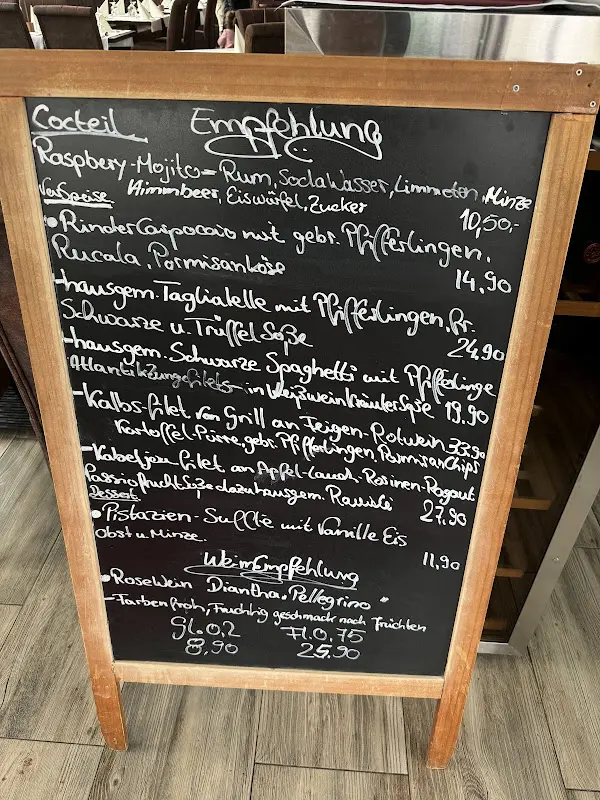 Cocteil Empfehlung
Raspbery-Mojito = Rum, Soda Wasser, Limmeten, Minze
Himmbeer, Eiswürfel, Zucker 10,50,-
VorSpeise
• Rinder Carpocaio mit gebr. Pfifferlingen,
Rucala, Parmisankäse 14,90
- hausgem. Tagliatelle mit Pfifferlingen, fr.
Schwarze u. Trüffel Soße 24,90
- hausgem. Schwarze Spaghetti mit Pfifferlinge
Atlantikzungefilets in Weißwein Kräuter Soße 19,90
- Kalbsfilet von Grill an Feigen-Rotwein 33,90
Kartoffel-Püree, gebr. Pfifferlingen, Parmisan Chips
- Kabeljau filet an Apfel-Lauch-Rosinen-Ragout
Passionfrucht Soße dazu hausgem. Ravioli 27,90
Dessert
• Pistazien-Sufflé mit Vanille Eis
obst u. Minze. 11,90
WeinEmpfehlung
• RoseWein "Dianthus Pellegrino"
- Farbenfroh, Fruchtig geschmack nach Früchten
Gl. 0,2 Fl. 0,75
8,90 25,90